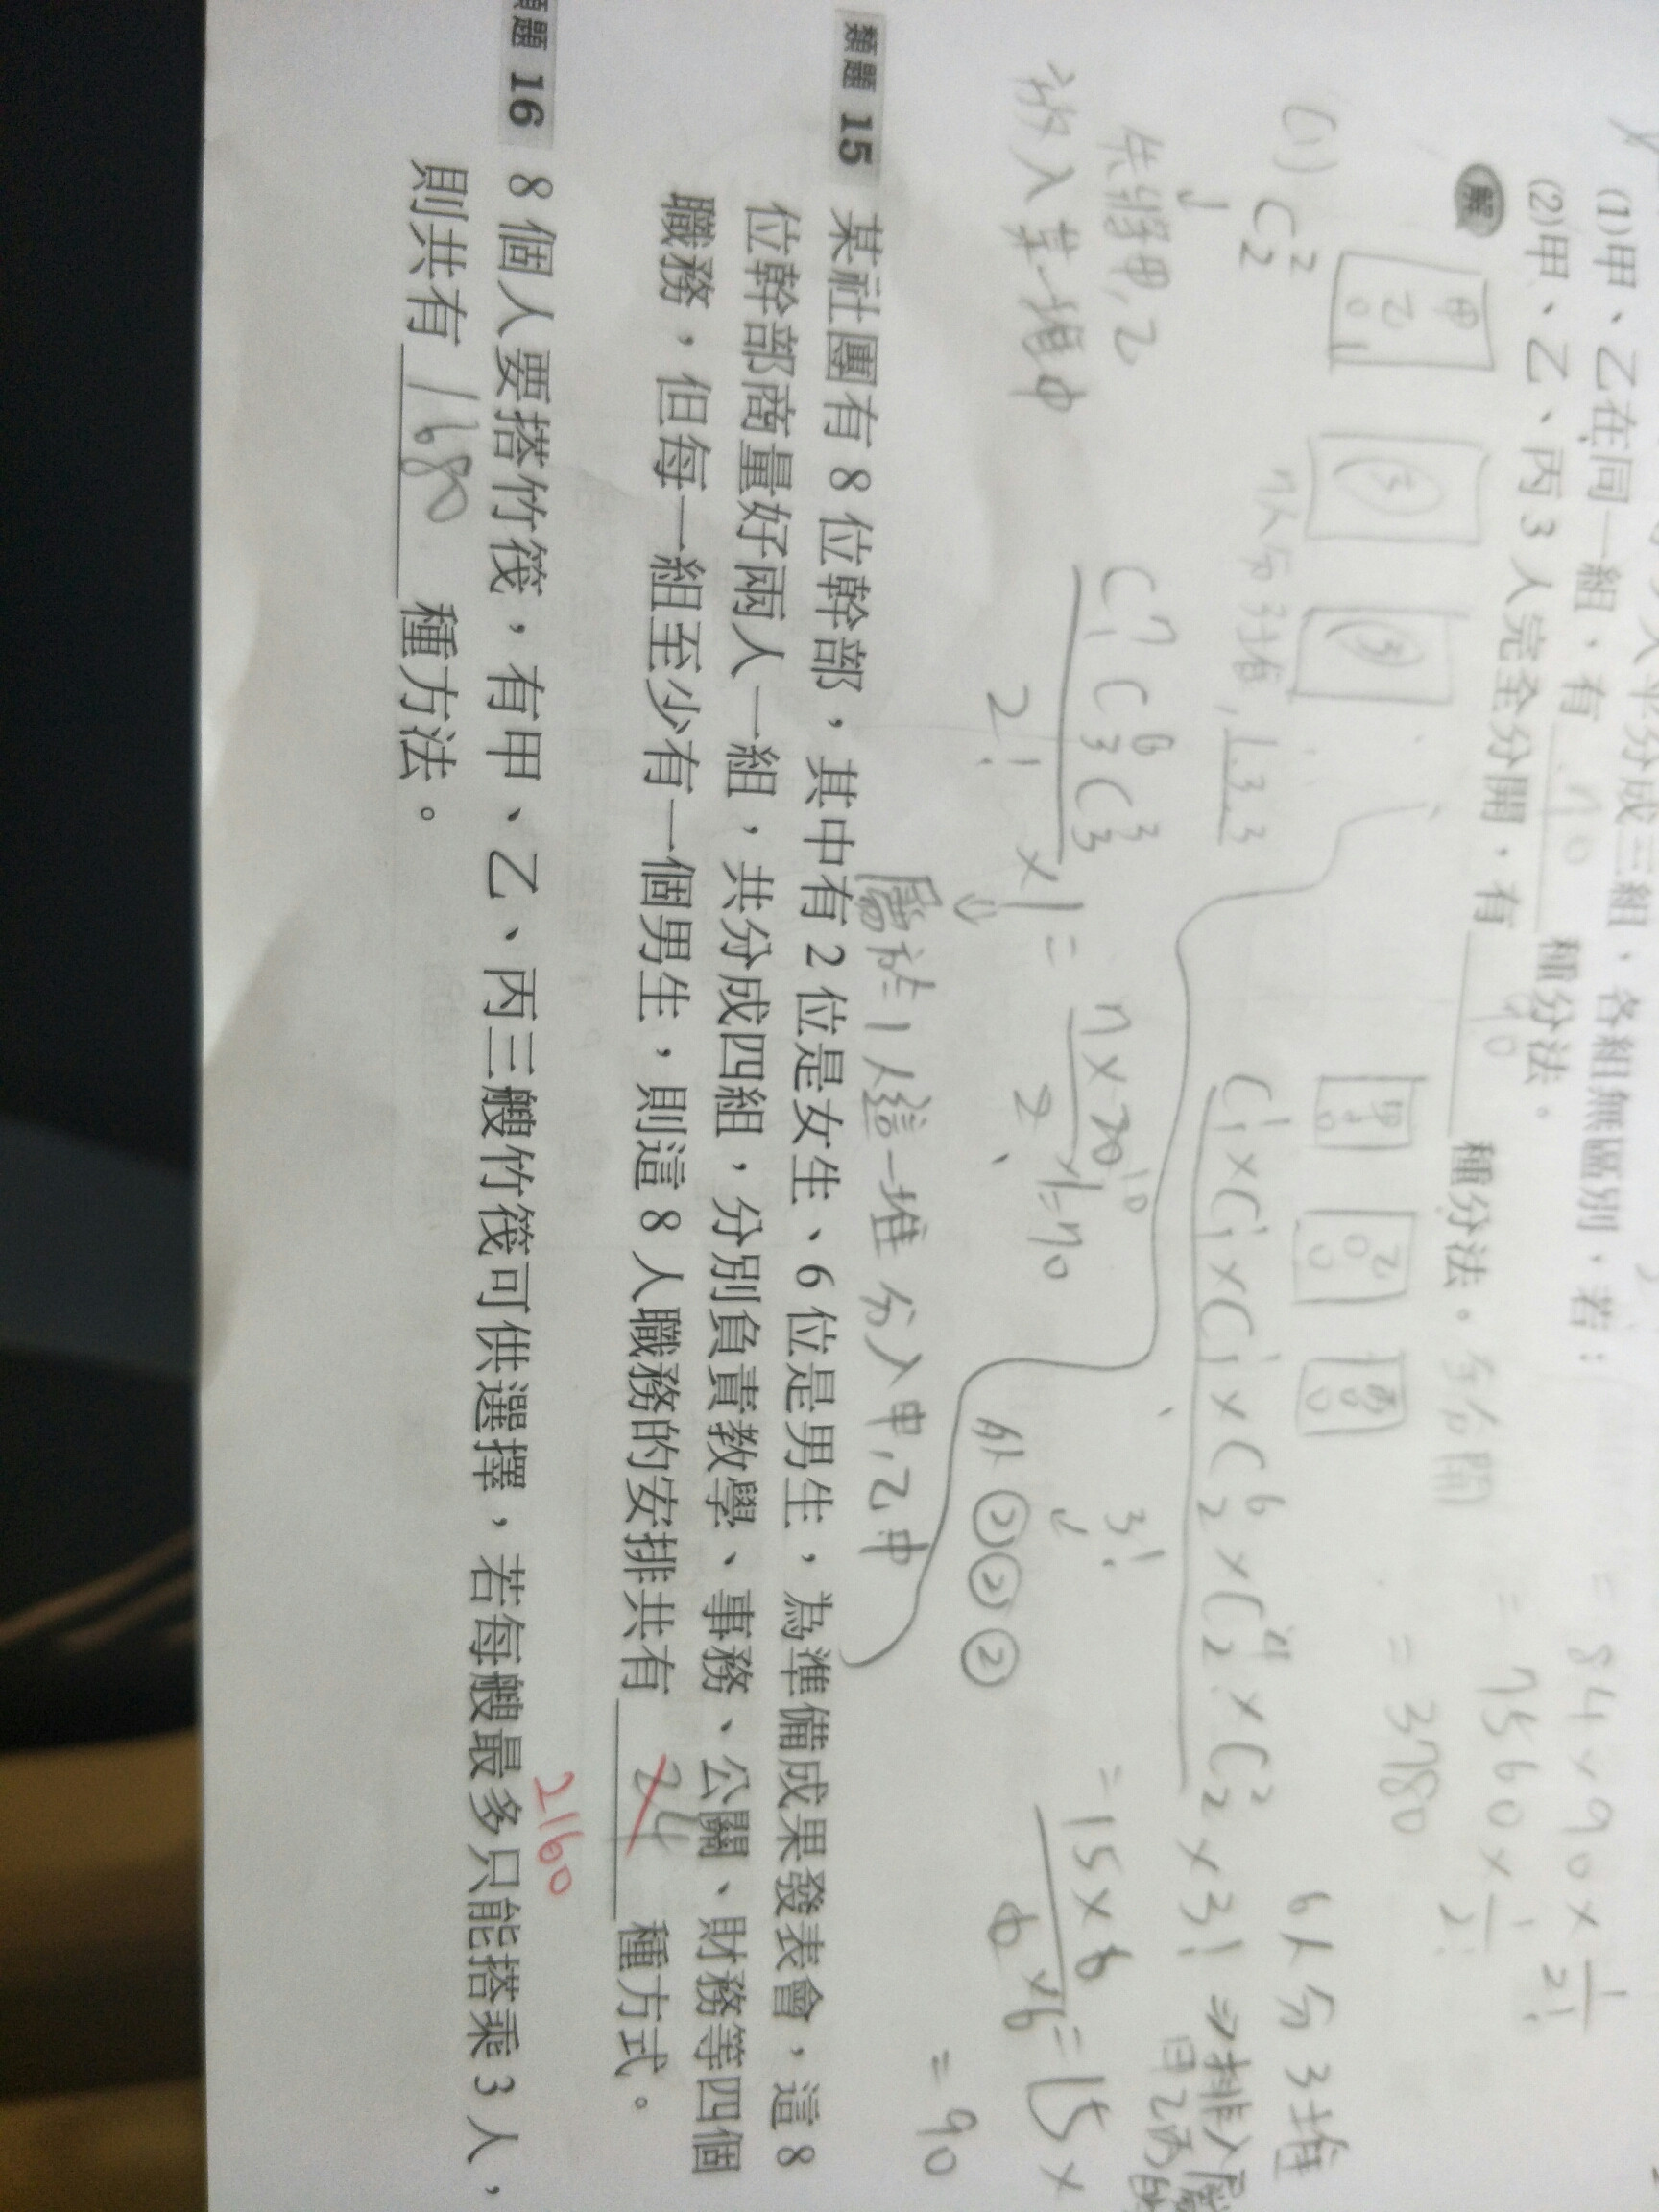 分成三組，各組無區別，若：
(1)甲、乙在同一組，有 70 種分法。
(2)甲、乙、丙3人完全分開，有 90 種分法。 分開
= 84 × 90 × 1/2!
= 7560 × 1/2!
= 3780
解
甲 乙 ③ ③
(1) C²₂ 7人分3堆，1.3.3
先將甲，乙
放入某一堆中
C⁷₁ C⁶₃ C³₃ / 2! × 1 = 7×20 / 2 × 1 = 70
10
屬於1人這一堆 分入甲，乙中
甲 乙 丙
6人分3堆
C¹₁ × C¹₁ × C¹₁ × C⁶₂ × C⁴₂ × C²₂ / 3! × 3! ⇒ 排入屬
甲乙丙的
外②②②
= 15 × 6 / 6 × 6 = 15 ×
= 90
類題 15 某社團有 8 位幹部，其中有 2 位是女生、6 位是男生，為準備成果發表會，這 8
位幹部商量好兩人一組，共分成四組，分別負責教學、事務、公關、財務等四個
職務，但每一組至少有一個男生，則這 8 人職務的安排共有 24 種方式。
2160
類題 16 8 個人要搭竹筏，有甲、乙、丙三艘竹筏可供選擇，若每艘最多只能搭乘 3 人，
則共有 1680 種方法。